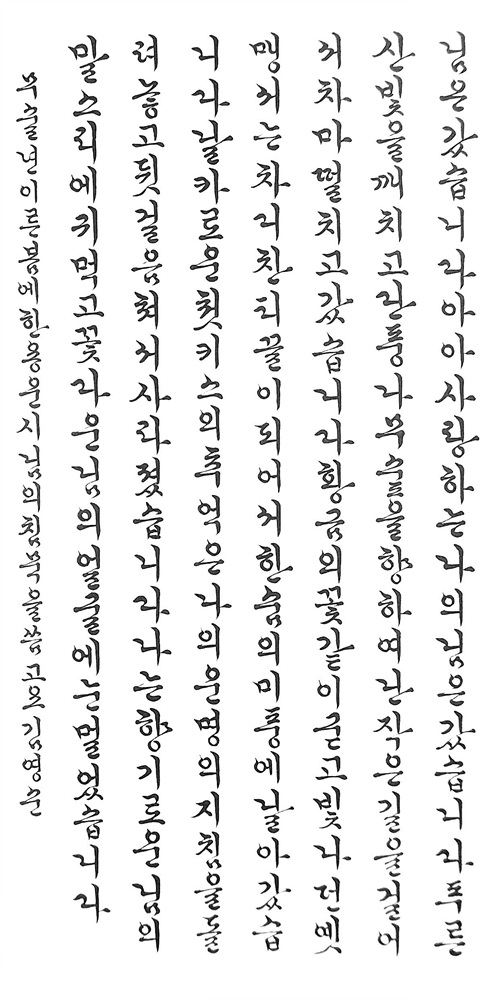 님은갔습니다아아사랑하는나의님은갔습니다푸른
산빛을깨치고단풍나무숲을향하여난작은길을걸어
서차마떨치고갔습니다황금의꽃같이굳고빛나던옛
맹서는차디찬티끌이되어서한숨의미풍에날아갔습
니다날카로운첫키스의추억은나의운명의지침을돌
려놓고뒷걸음쳐서사라졌습니다나는향기로운님의
말소리에귀먹고꽃다운님의얼굴에눈멀었습니다
무술년이른봄에한용운시님의침묵을씀 김영순